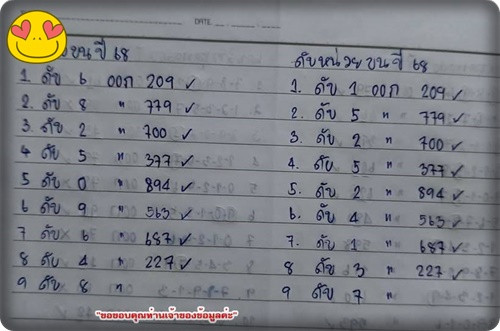 DATE
บนปี 68
1. ดับ 6 ออก 209 ✓
2. ดับ 8 " 779 ✓
3. ดับ 2 " 700 ✓
4 ดับ 5 " 377 ✓
5 ดับ 0 " 894 ✓
6 ดับ 9 " 563 ✓
7 ดับ 6 " 687 ✓
8 ดับ 4 " 227 ✓
9 ดับ 8 "
ดับหน่วยบนปี 68
1. ดับ 1 ออก 209 ✓
2. ดับ 5 " 779 ✓
3. ดับ 2 " 700 ✓
4. ดับ 5 " 377 ✓
5. ดับ 2 " 894 ✓
6. ดับ 4 " 563 ✓
7. ดับ 1 " 687 ✓
8 ดับ 3 " 227 ✓
9 ดับ 7 "
"ขอขอบคุณท่านเจ้าของข้อมูลค่ะ"